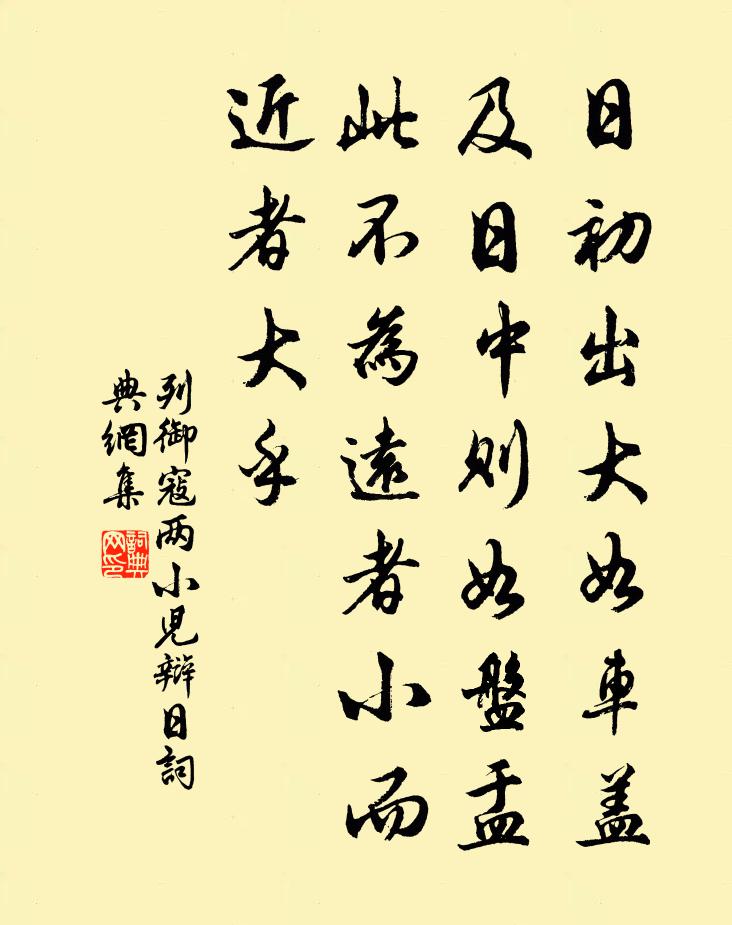 日初出大如車蓋
及日中則如盤盂
此不為遠者小而
近者大乎
列御寇两小児辯日詞
典網集
詞典
网印